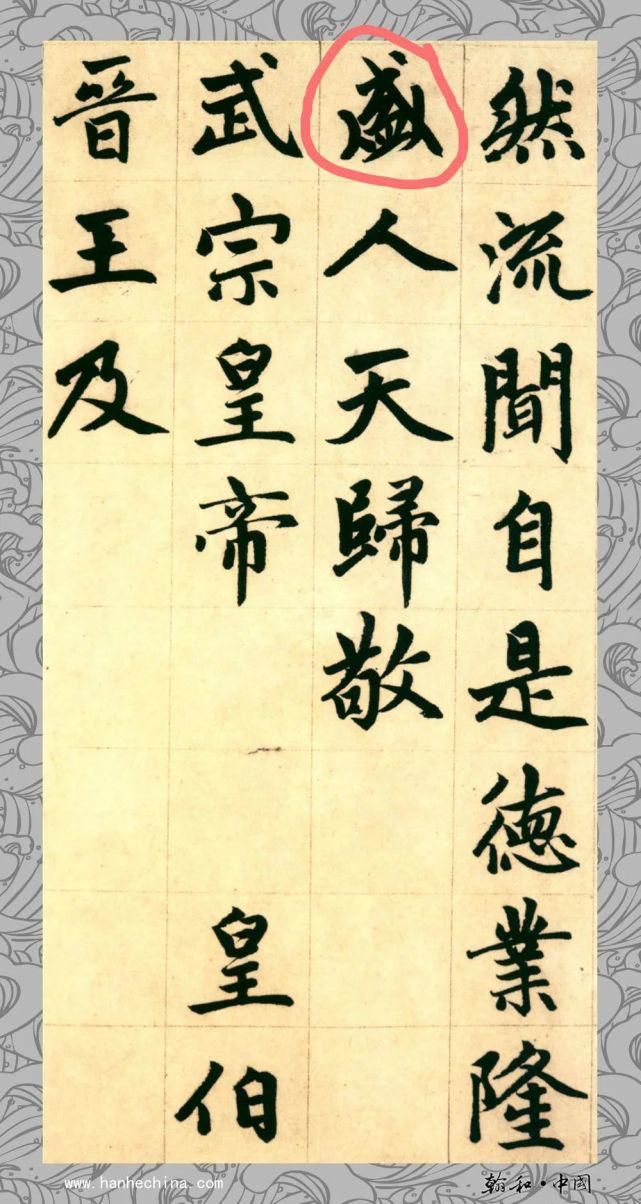 然流聞自是德業隆
盛人天歸敬
武宗皇帝 皇伯
晋王及
www.hanhechina.com
翰和·中國